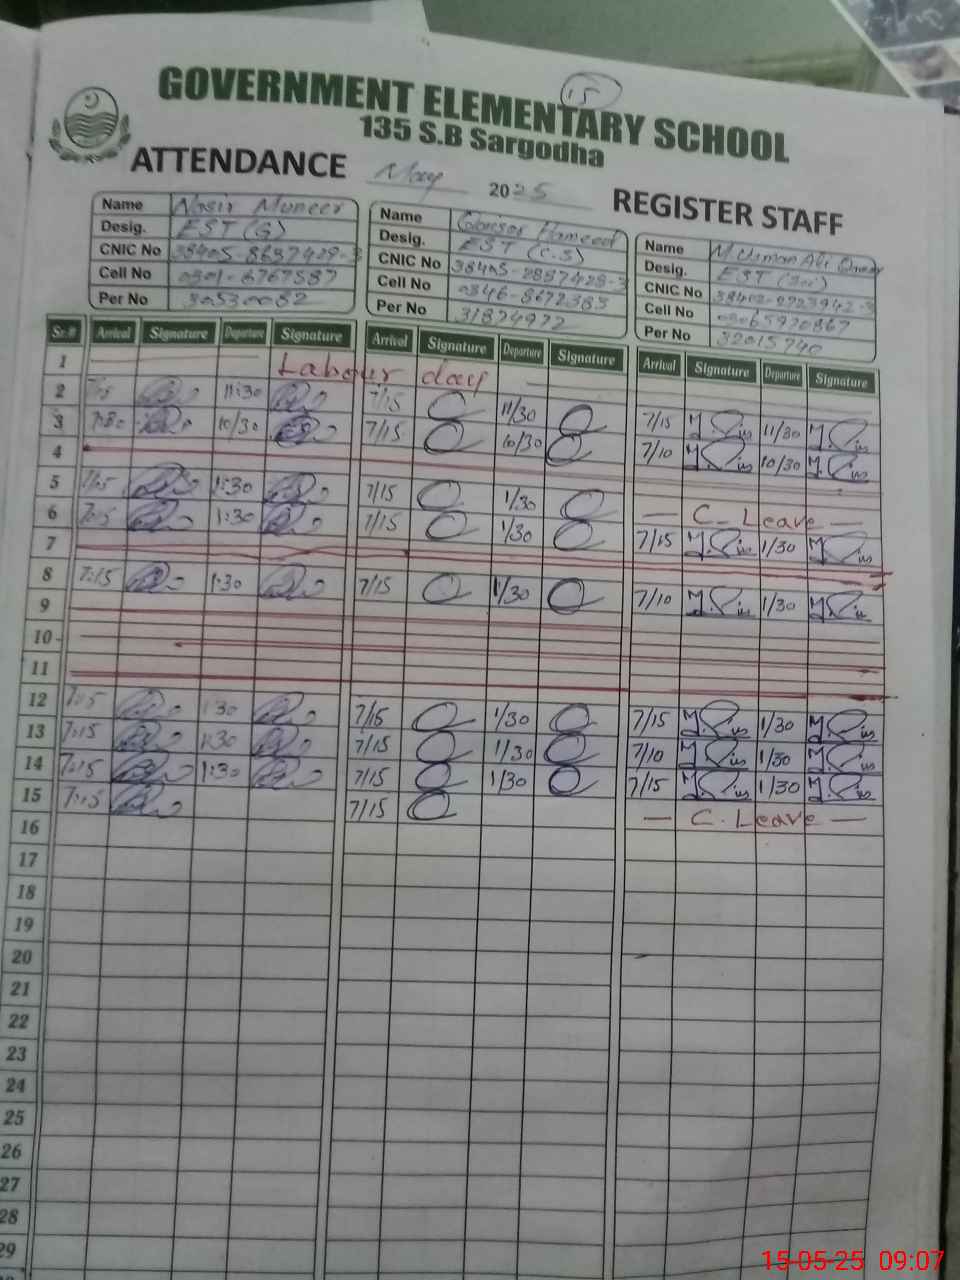 15
GOVERNMENT ELEMENTARY SCHOOL
135 S.B Sargodha
ATTENDANCE May 2025 REGISTER STAFF
Name Nasir Muneer
Desig. EST (G)
CNIC No
Cell No 0301-6767587
Per No 30530082
Name Qaisar Hameed
Desig. EST (C.S)
CNIC No
Cell No 0346-8672383
Per No 31874972
Name M. Usman Ali
Desig. EST
CNIC No
Cell No 03065970867
Per No 32015740
Sr.# Arrival Signature Departure Signature Arrival Signature Departure Signature Arrival Signature Departure Signature
1 Labour day
2 11:30 7/15 11/30 7/15 11/30
3 10/30 7/15 10/30 7/10 10/30
4
5 1:30 7/15 1/30 C. Leave
6 1:30 7/15 1/30 7/15 1/30
7
8 7:15 1:30 7/15 1/30 7/10 1/30
9
10
11
12 7:15 1:30 7/15 1/30 7/15 1/30
13 7:15 1:30 7/15 1/30 7/10 1/30
14 7:15 1:30 7/15 1/30 7/15 1/30
15 7:15 7/15 C. Leave
16
17
18
19
20
21
22
23
24
25
26
27
28
29
15-05-25 09:07